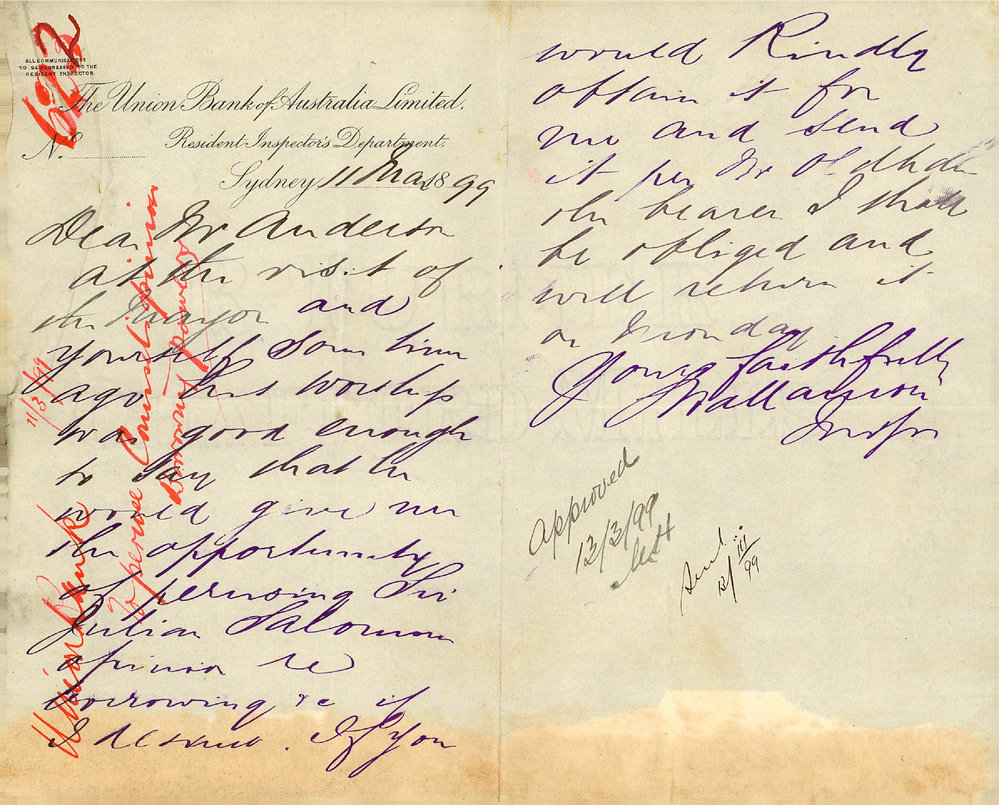 622
ALL COMMUNICATIONS
TO BE ADDRESSED TO THE
RESIDENT INSPECTOR.
The Union Bank of Australia Limited.
Resident Inspector's Department.
No.
Sydney 11 Mar 1899
Dear Mr Anderson
at the visit of
the Mayor and
yourself some time
ago His Worship
was good enough
to say that he
would give me
the opportunity
of perusing Sir
Julian Salomons
opinion re
borrowing &c if
I desired. If you
would Kindly
obtain it for
me and send
it per Mr
the bearer I shall
be obliged and
will return it
on Monday
Yours faithfully
Inspr
Union Bank
11/3/99
To peruse Counsel's opinion
Borrowing powers
Approved
13/3/99
Sent
13/iii/99